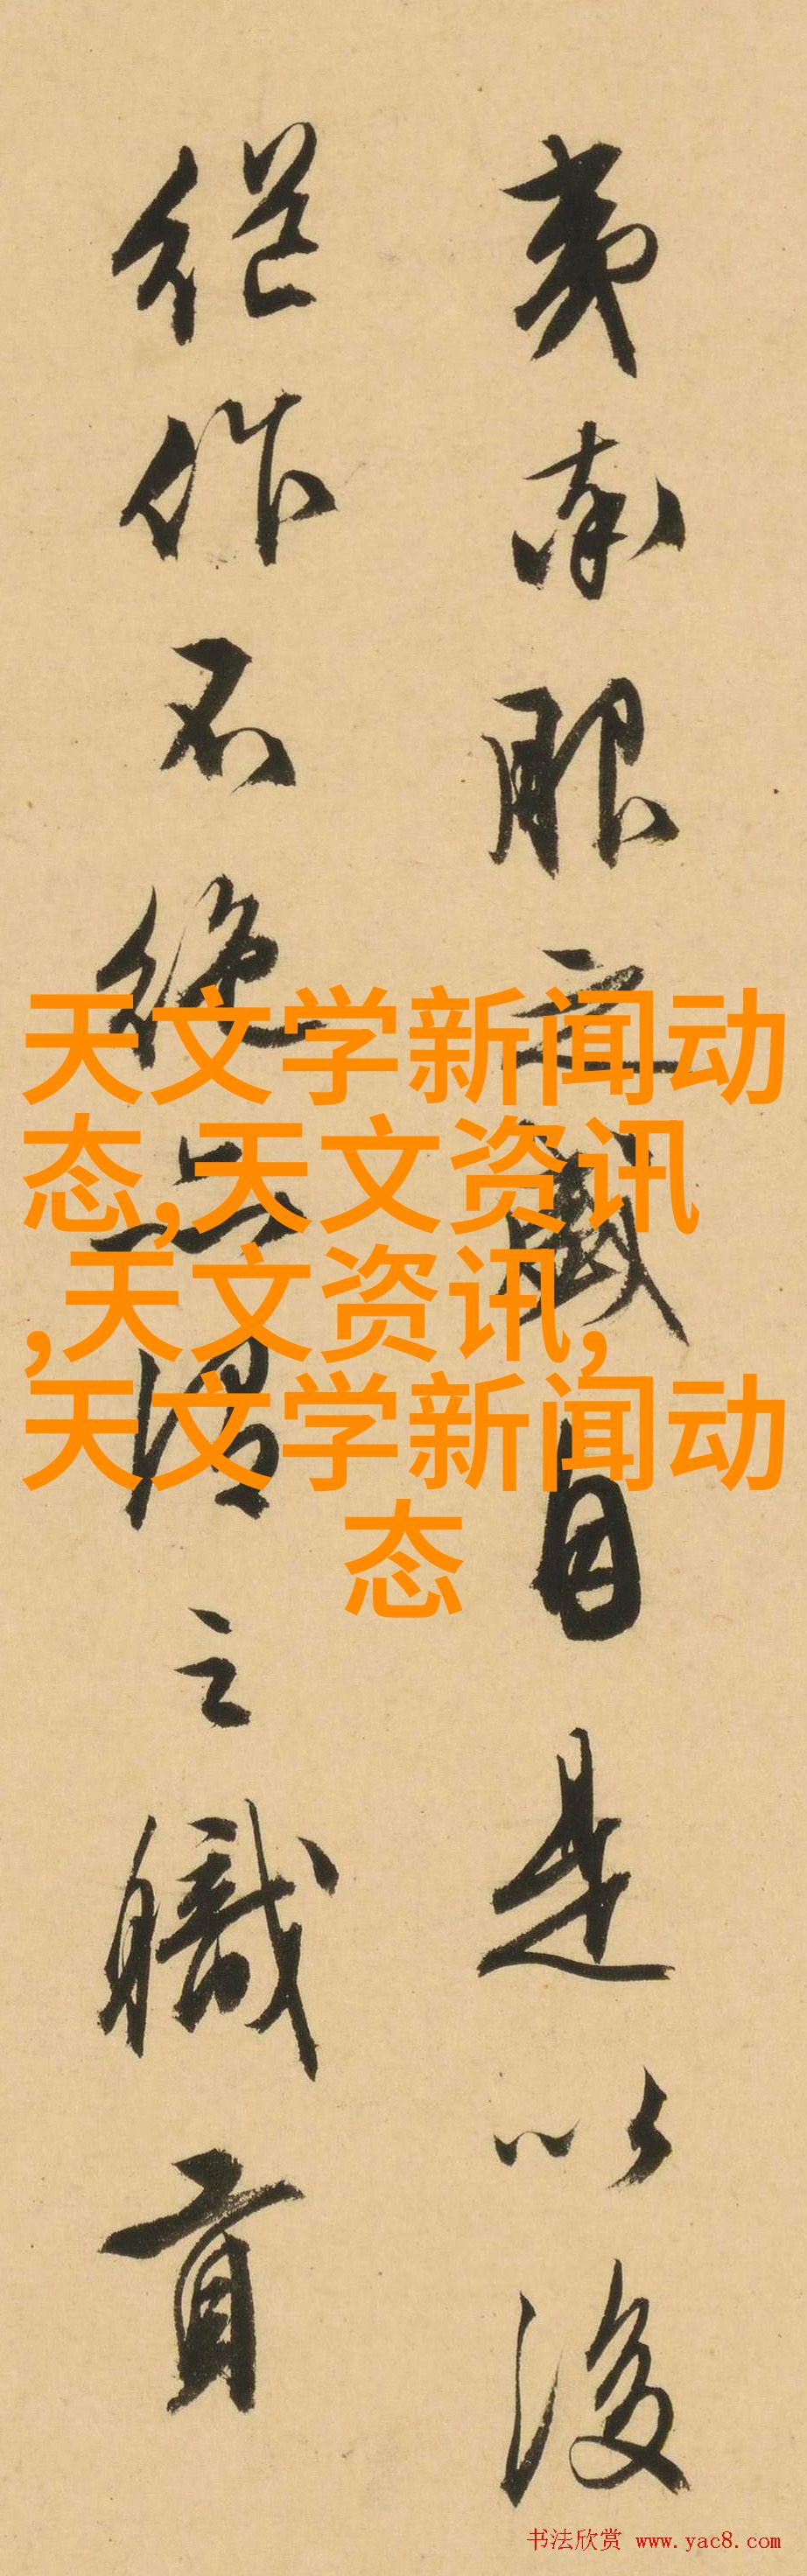 夷南服之職自是以後
繼作不絕品謂之職貢
天文学新闻动
态,天文资讯
,天文资讯,
天文学新闻动
态
书法欣赏 www.yac8.com